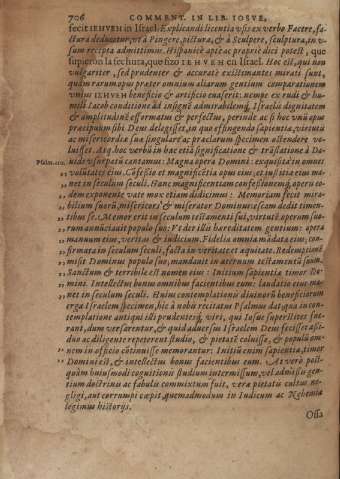 706 COMMENT. IN LIB. IOSVE,
fecit IEHVEH in Israel. Explicandi licentia visa ex verbo Facere, fa-
ctura deducatur, vt à Pingere, pictura, & à Sculpere, sculptura, in v-
sum recepta admittimus. Hispanicè aptè ac propriè dici potest, que
supieron la fechura, que fizo IEHVEH en Israel. Hoc est, qui non
vulgariter, sed prudenter & accuratè existimantes mirati sunt,
quàm rarum opus præter omnium aliarum gentium comparationem
vnius IEHVEH beneficio & artificio euaserit: nempe ex rudi & hu-
mili Iacob conditione ad insignè admirabilemq́; Israelis dignitatem
& amplitudinē efformatus & perfectus, perinde ac si hoc vnū opus
præcipuum sibi Deus delegisset, in quo effingendo sapientiæ, virtutis
ac misericordiæ suæ singulare ac præclarum specimen ostendere vo-
luisset. Atq; hoc verbū in hac etiā significatione & trāslatione à Da-
uide vsurpatū cantamus: Magna opera Domini: exquisita in omnes
Psalm. 110.
voluntates eius. Cōfessio et magnificētia opus eius, et iustitia eius ma-
net in sæculum sæculi. Hanc magnificentiam confessionemq́; operis eo-
dem exponente vate mox etiam didicimus: Memoriam fecit mira-
bilium suorū, misericors & miserator Dominus: escam dedit timen-
tibus se. Memor erit in sæculum testamēti sui, virtutē operum suo-
rum annūciauit populo suo: Vt det illis hæreditatem gentium: opera
manuum eius, veritas & iudicium. Fidelia omnia mādata eius, con-
firmata in sæculum sæculi, facta in veritate et æquitate. Redemptionē
misit Dominus populo suo, mandauit in æternum testamentū suum.
Sanctum & terribile est nomen eius: Initium sapientiæ timor Do-
mini. Intellectus bonus omnibus facientibus eum: laudatio eius ma-
net in sæculum sæculi. Huius contemplationis diuinorū beneficiorum
erga Israelem specimen, hîc à nobis recitatus Psalmus dat, qua in con-
templatione antiqui illi prudentesq́; viri, qui Iosue superstites fue-
rant, dum versarentur, & quid aduersus Israelem Deus fecisset assi-
duo ac diligente repeterent studio, & pietatē coluisse, & populū om-
nem in officio cōtinuisse memorantur: Initiū enim sapientiæ, timor
Domini est, & intellectus bonus facientibus eum. At verò post-
quàm huiusmodi cognitionis studium intermissum, vel admissis gen-
tium doctrinis ac fabulis commixtum fuit, vera pietatis cultus ne-
gligi, aut corrumpi cœpit, quemadmodum in Iudicum ac Nehemiæ
legimus historijs.
Ossa